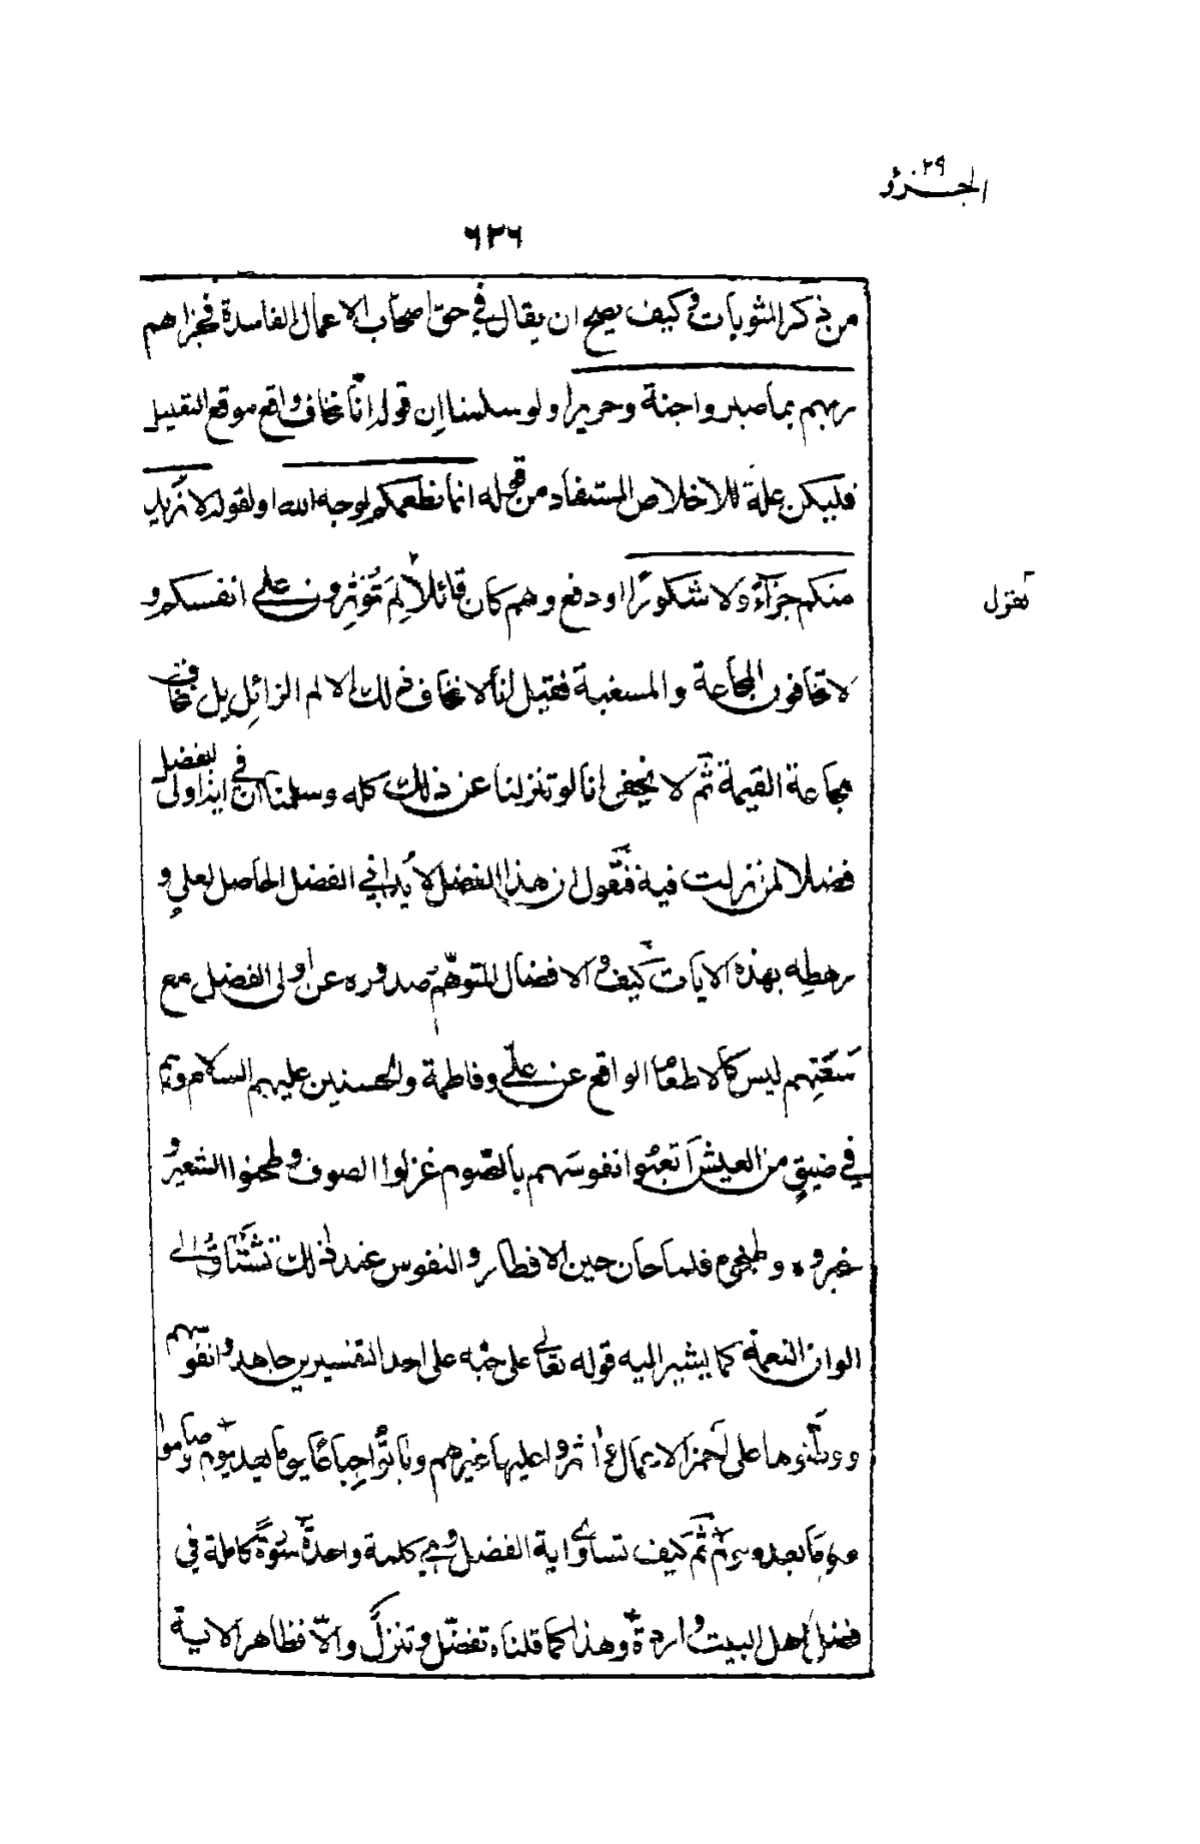 الجزؤ ٢٩
٦٢٦
من ذكر المثوبات وكيف يصح ان يقال في حق اصحاب الاعمال الفاسدة فجزاهم
ربهم بما صبروا جنة وحريرا ولو سلمنا ان قوله انا نخاف واقع موقع التعليل
فليكن علة للاخلاص المستفاد من قوله انما نطعمكم لوجه الله او لقوله لا نريد
منكم جزآءً ولا شكورًا او دفع وهم كان قائلا لِمَ تُؤثِرون على انفسكم و
لا تخافون المجاعة والمسغبة فقيل لنا لا نخاف ذلك الالم الزائل بل نخاف
مجاعة القيمة ثم لا يخفى انا لو تنزلنا عن ذلك كله وسلمنا ان في آية اولى الفضل
فضلا لمن نزلت فيه فنقول ان هذا الفضل لا يُداني الفضل الحاصل لعلي و
رهطه بهذه الايات كيف والافضال المتوهّم صدوره عن اولى الفضل مع
سَعَتِهم ليس كالاطعام الواقع عن علىّ وفاطمة والحسنين عليهم السلام وهم
في ضيقٍ من العيش اتعبُوا انفوسَهم بالصّوم غزلوا الصوف وطحنوا الشعير و
خبزوه وطبخوه فلما حان حين الافطار والنفوس عند ذلك تشتاقُ الى
الوان النعمة كما يشير اليه قوله تعالى على حبّه على احد التفسيرين جاهدوا نفوسهم
ووطّنوها على احمز الاعمال و اثروا عليها غيرهم وباتُوا جياعًا يوما بعد يوم وصاموا
يوما بعد يوم ثم كيف تساوى اية الفضل وهي كلمة واحدة سُورةً كاملة في
فضل اهل البيت واردة وهذا كما قلناه تفضّل وتنزلّ والاّ فظاهر الاية